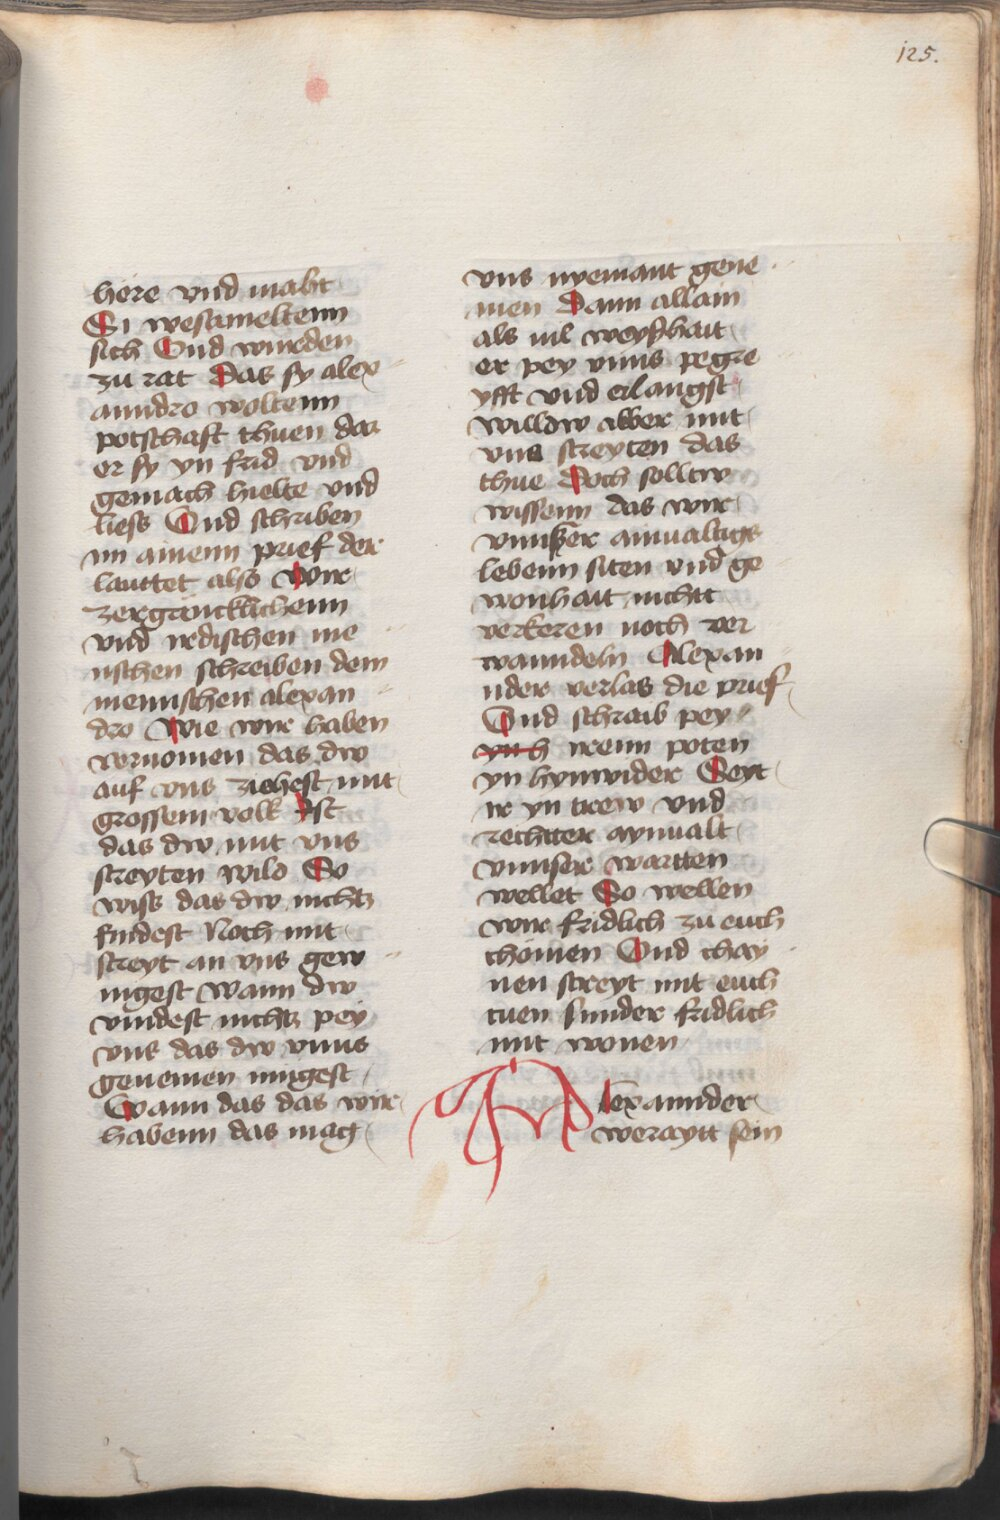 125.
höre vnd macht
Si wesameltenn
sich Vnd wurden
zu rat Das sy alex
anndro woltenn
potschaft thuen das
er sy yn frid vnd
gemach hielte vnd
liess Vnd schriben
im ainenn prief der
lauttet also Wir
zergäncklichenn
vnd irdischen me
nschen schreiben dem
mennschen alexan
dro Wie wir haben
vernomen das dw
auf vns ziehest mit
grossem volk Ist
das dw mit vns
streyten wild So
wiss das dw nichtz
findest Noch mit
streyt an vns gew
ingest Wann dw
vindest nichtz pey
vns das dw vnns
genemen mügest
Wann das das wir
habenn das mag
vns nyemant gene
men Dann allain
als vil weyßhait
er pey vnns pegre
yfft vnd erlangst
willdw abber mit
vns streyten das
thue Doch solltw
wissenn das wir
vnnser ainualtigs
lebenn siten vnd ge
wonhait nichtt
verkeren noch ver
wanndeln Alexan
nder verlas die prief
Vnd schraib pey
ynh irenn poten
yn hynwider Seyt
ir yn trew vnd
rechtter aynualt
vnnser wartten
wellet So wellen
wir fridlich zu euch
chömen Vnd chay
nen streyt mit euch
tuen sunder fridlich
mit wonen
Alexannder
weraytt sein